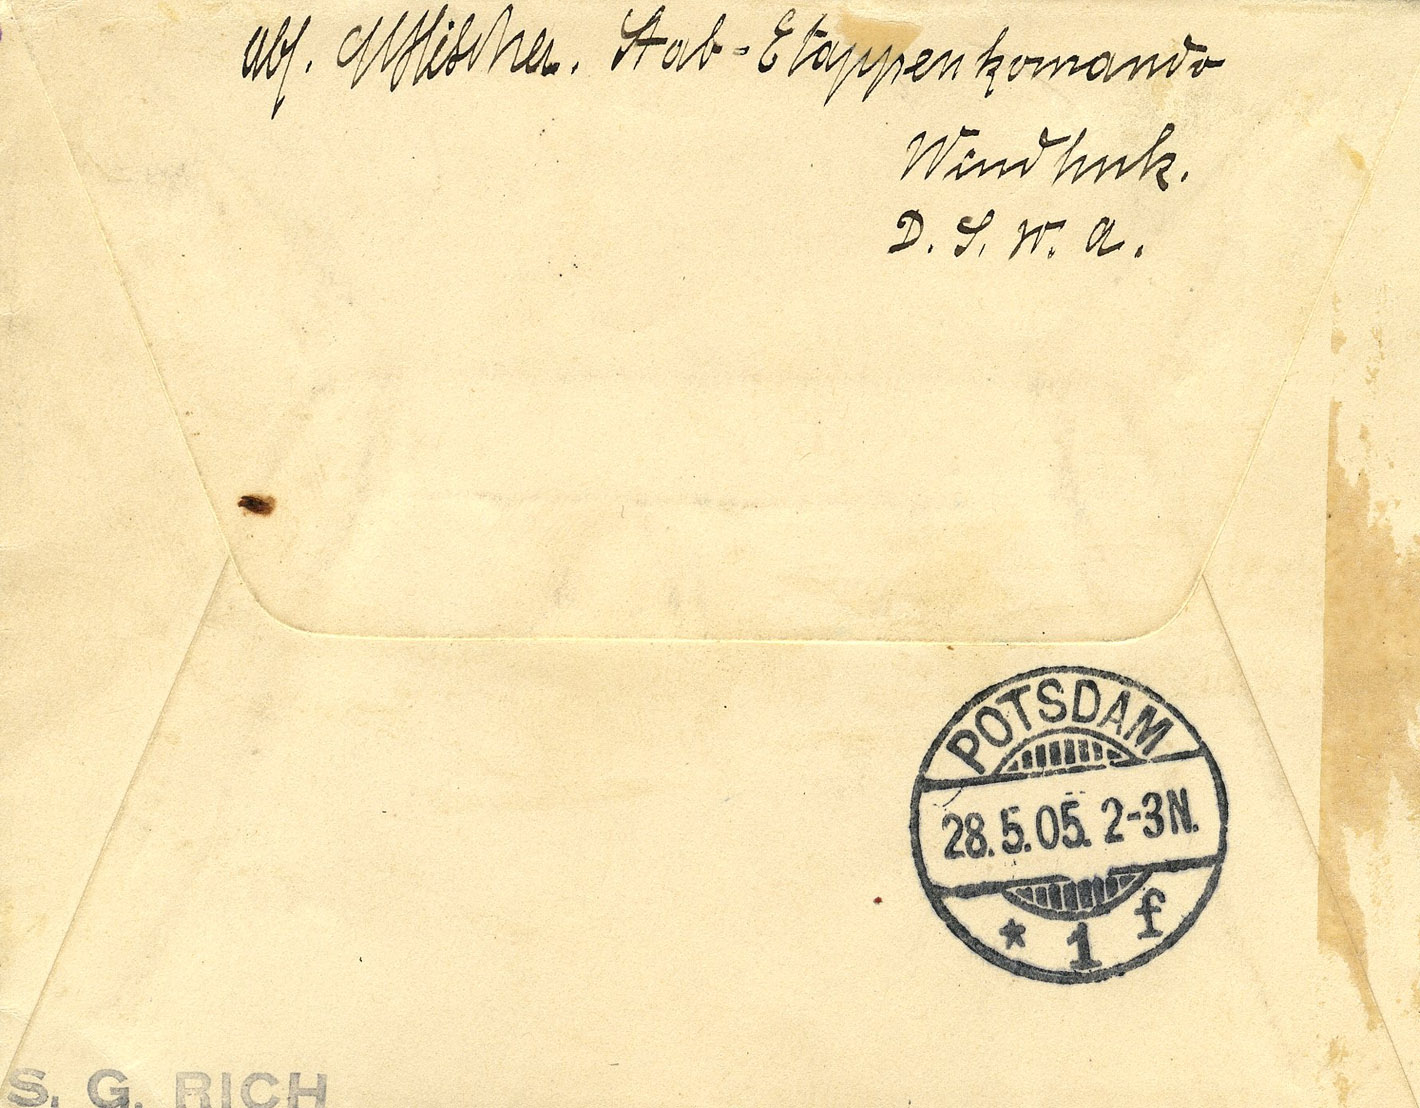 Abs. Stab-Etappenkomando
Windhuk.
D. S. W. A.
POTSDAM
28.5.05. 2-3N.
* 1 f
S. G. RICH